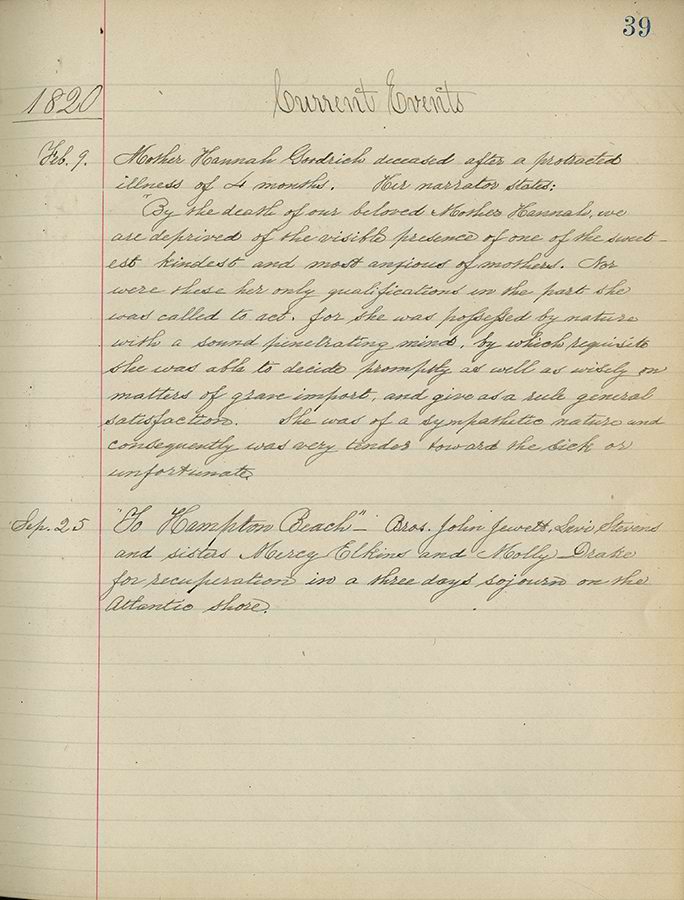 39
1820
Current Events
Feb. 9. Mother Hannah Goodrich deceased after a protracted
illness of 4 months. Her narrator states:
"By the death of our beloved Mother Hannah, we
are deprived of the visible presence of one of the sweet-
est kindest and most anxious of mothers. Nor
were these her only qualifications in the part she
was called to act. for she was possessed by nature
with a sound penetrating mind, by which requisite
she was able to decide promptly as well as wisely on
matters of grave import, and give as a rule general
satisfaction. She was of a sympathetic nature and
consequently was very tender toward the sick or
unfortunate.
Sep. 25 "To Hampton Beach"— Bros. John Jewett, Levi Stevens
and sisters Mercy Elkins and Molly Drake
for recuperation in a three days sojourn on the
Atlantic shore.